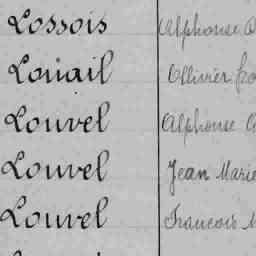 Lossois Alphonse
Louail Ollivier
Louvel Alphonse
Louvel Jean Marie
Louvel Francois M